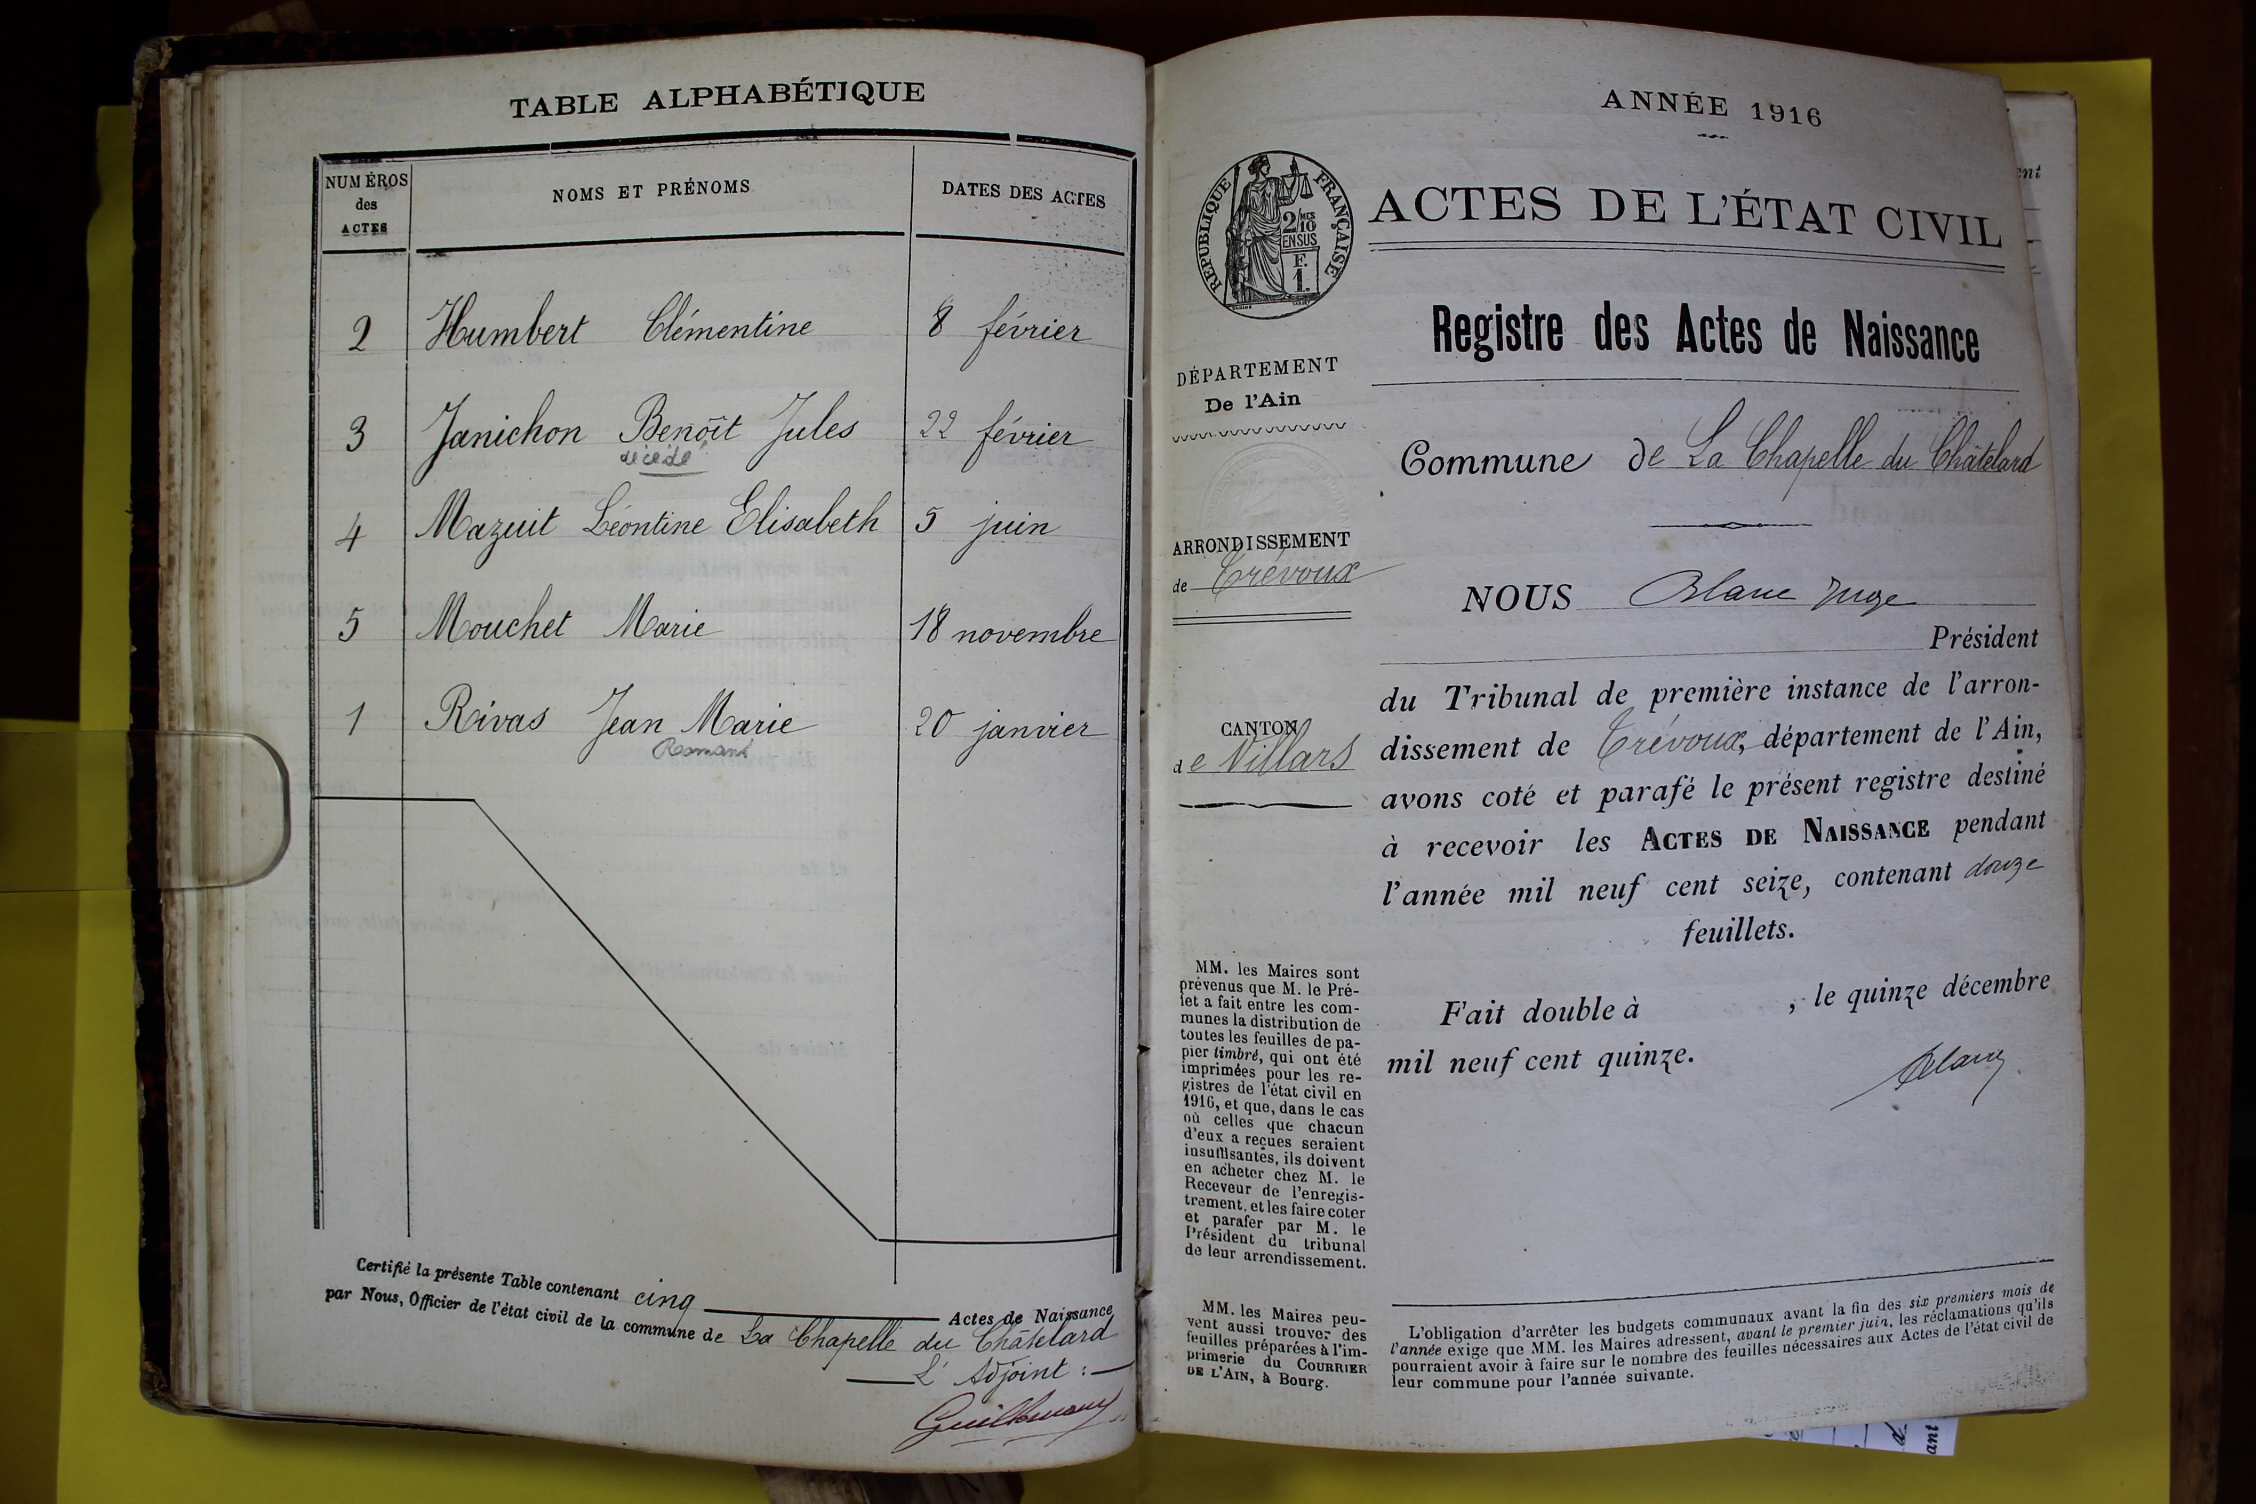 TABLE ALPHABÉTIQUE
NUMÉROS
des
ACTES
NOMS ET PRÉNOMS
DATES DES ACTES
2 Humbert Clémentine 8 février
3 Janichon Benoît Jules 22 février
décédé
4 Mazuit Léontine Elisabeth 5 juin
5 Mouchet Marie 18 novembre
1 Rivas Jean Marie 20 janvier
Certifié la présente Table contenant cinq Actes de Naissance
par Nous, Officier de l'état civil de la commune de La Chapelle du Châtelard
L'Adjoint :
ANNÉE 1916
RÉPUBLIQUE FRANÇAISE
2/MES
10
EN SUS
F.
1.
ACTES DE L'ÉTAT CIVIL
Registre des Actes de Naissance
DÉPARTEMENT
De l'Ain
ARRONDISSEMENT
de Trévoux
CANTON
de Villars
MM. les Maires sont
prévenus que M. le Pré-
fet a fait entre les com-
munes la distribution de
toutes les feuilles de pa-
pier timbré, qui ont été
imprimées pour les re-
gistres de l'état civil en
1916, et que, dans le cas
où celles que chacun
d'eux a reçues seraient
insuffisantes, ils doivent
en acheter chez M. le
Receveur de l'enregis-
trement, et les faire coter
et parafer par M. le
Président du tribunal
de leur arrondissement.
MM. les Maires peu-
vent aussi trouver des
feuilles préparées à l'im-
primerie du COURRIER
DE L'AIN, à Bourg.
Commune de La Chapelle du Châtelard
NOUS Blanc Juge
Président
du Tribunal de première instance de l'arron-
dissement de Trévoux, département de l'Ain,
avons coté et parafé le présent registre destiné
à recevoir les ACTES DE NAISSANCE pendant
l'année mil neuf cent seize, contenant douze
feuillets.
Fait double à , le quinze décembre
mil neuf cent quinze.
Blanc
L'obligation d'arrêter les budgets communaux avant la fin des six premiers mois de
l'année exige que MM. les Maires adressent, avant le premier juin, les réclamations qu'ils
pourraient avoir à faire sur le nombre des feuilles nécessaires aux Actes de l'état civil de
leur commune pour l'année suivante.